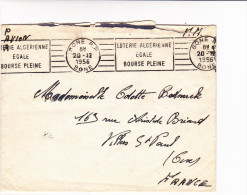 PAR AVION
BONE R.P.
LOTERIE ALGERIENNE
ÉGALE
BOURSE PLEINE
20-12
1956
BONE
LOTERIE ALGERIENNE
ÉGALE
BOURSE PLEINE
BONE R.P.
20-12
1956
BONE
Mademoiselle Odette
163 rue Aristide Briand
Villers St Paul
(Oise)
FRANCE